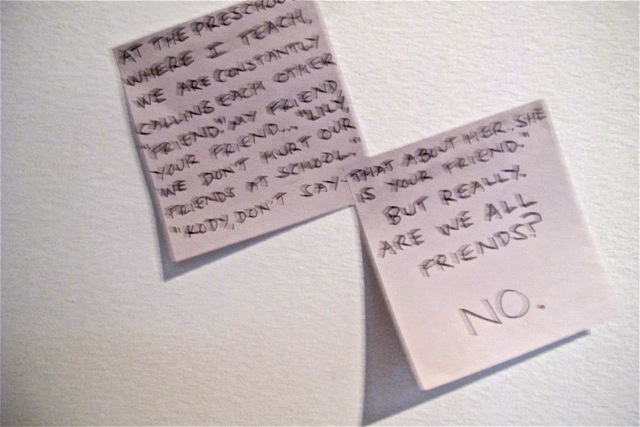 AT THE PRESCHOOL
WHERE I TEACH,
WE ARE CONSTANTLY
CALLING EACH OTHER
"FRIEND." MY FRIEND,
YOUR FRIEND... "LILY,
WE DON'T HURT OUR
FRIENDS AT SCHOOL."
"KODY, DON'T SAY
THAT ABOUT HER. SHE
IS YOUR FRIEND."
BUT REALLY.
ARE WE ALL
FRIENDS?
NO.